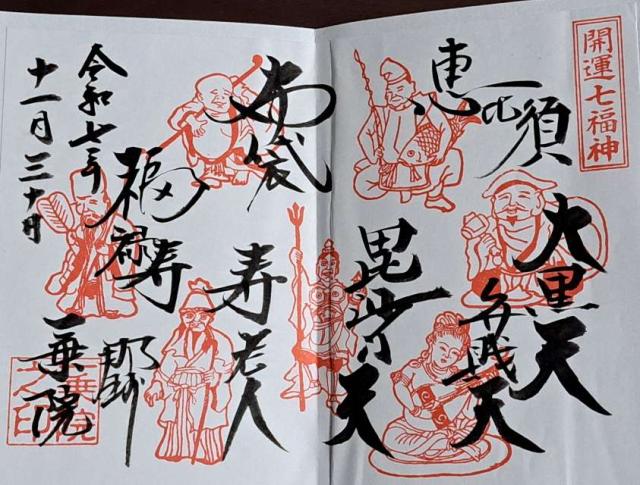 開運七福神
恵比須
大黒天
弁財天
毘沙門天
布袋
寿老人
福禄寿
令和七年
十一月三十日
那珂
一乗院